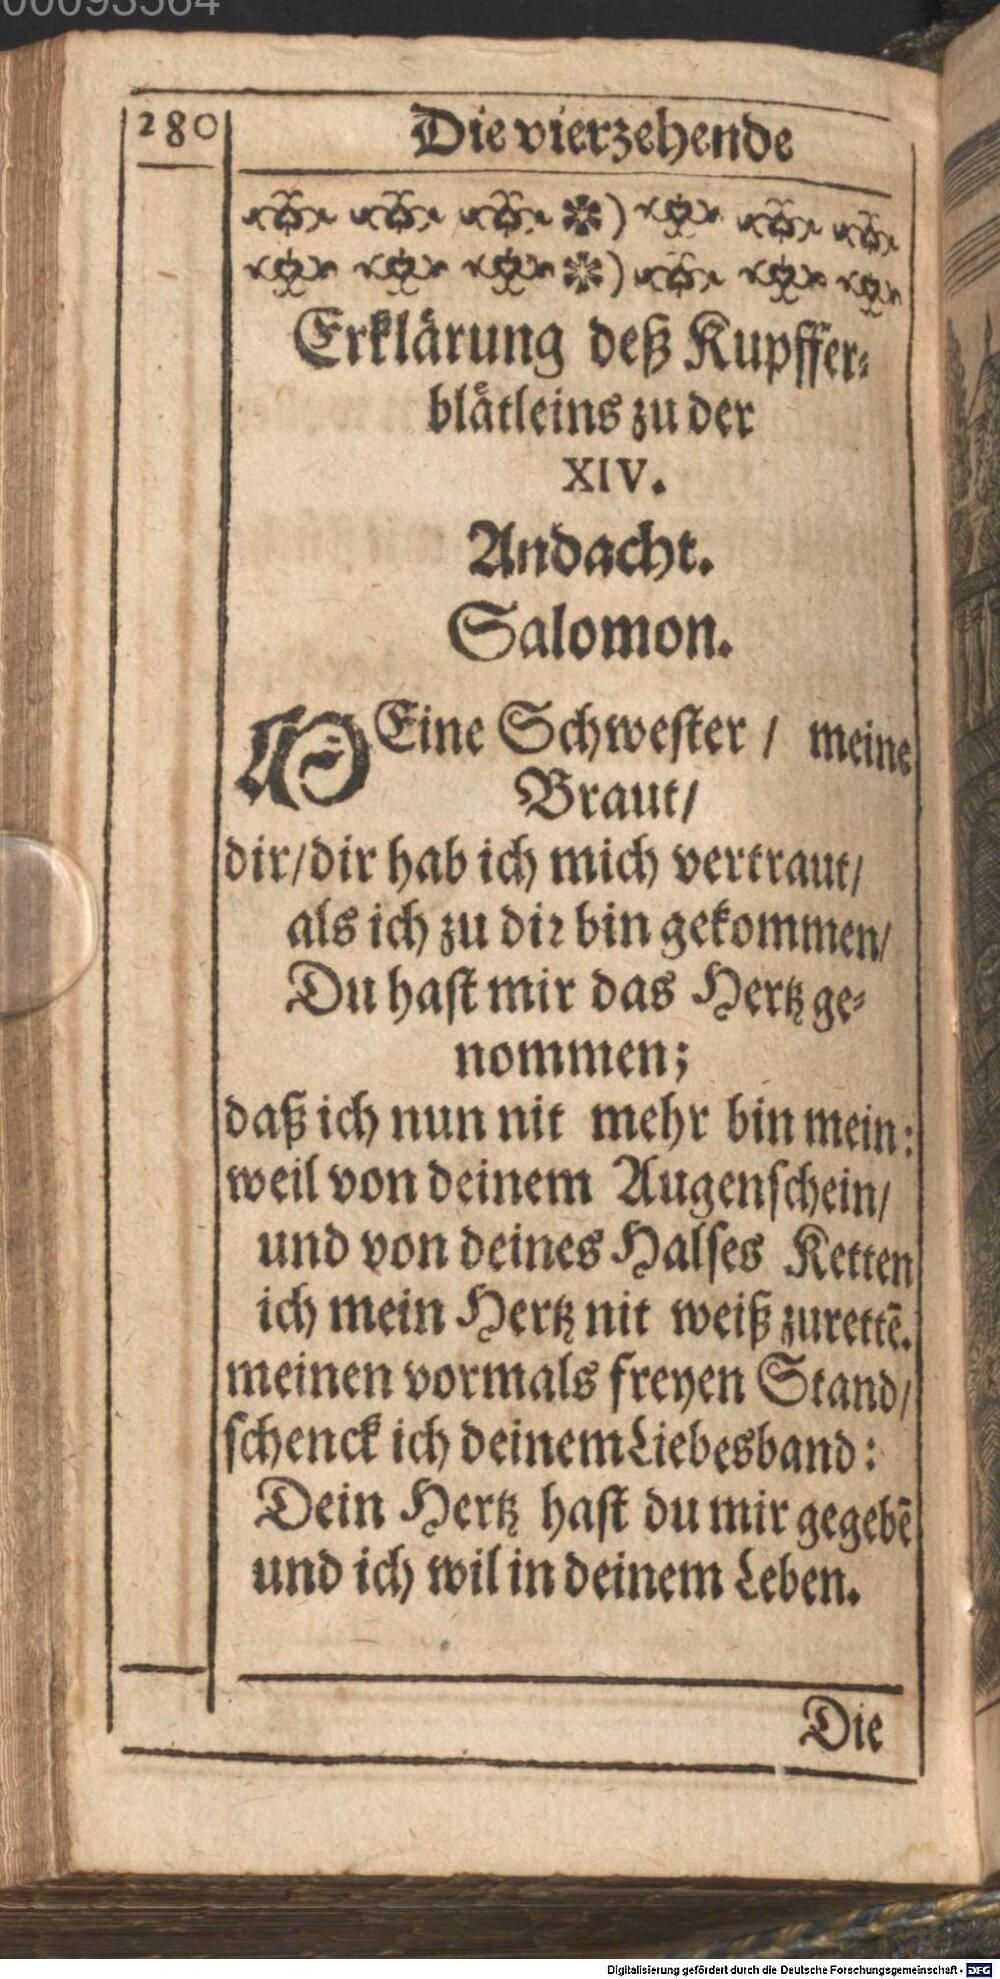 00093564
280
Die vierzehende
Erklärung deß Kupffer-
blätleins zu der
XIV.
Andacht.
Salomon.
MEine Schwester / meine
Braut/
dir/dir hab ich mich vertraut/
als ich zu dir bin gekommen/
Du hast mir das Hertz ge-
nommen;
daß ich nun nit mehr bin mein:
weil von deinem Augenschein/
und von deines Halses Ketten
ich mein Hertz nit weiß zurettē.
meinen vormals freyen Stand/
schenck ich deinem Liebesband:
Dein Hertz hast du mir gegebē
und ich wil in deinem Leben.
Die
Digitalisierung gefördert durch die Deutsche Forschungsgemeinschaft - DFG